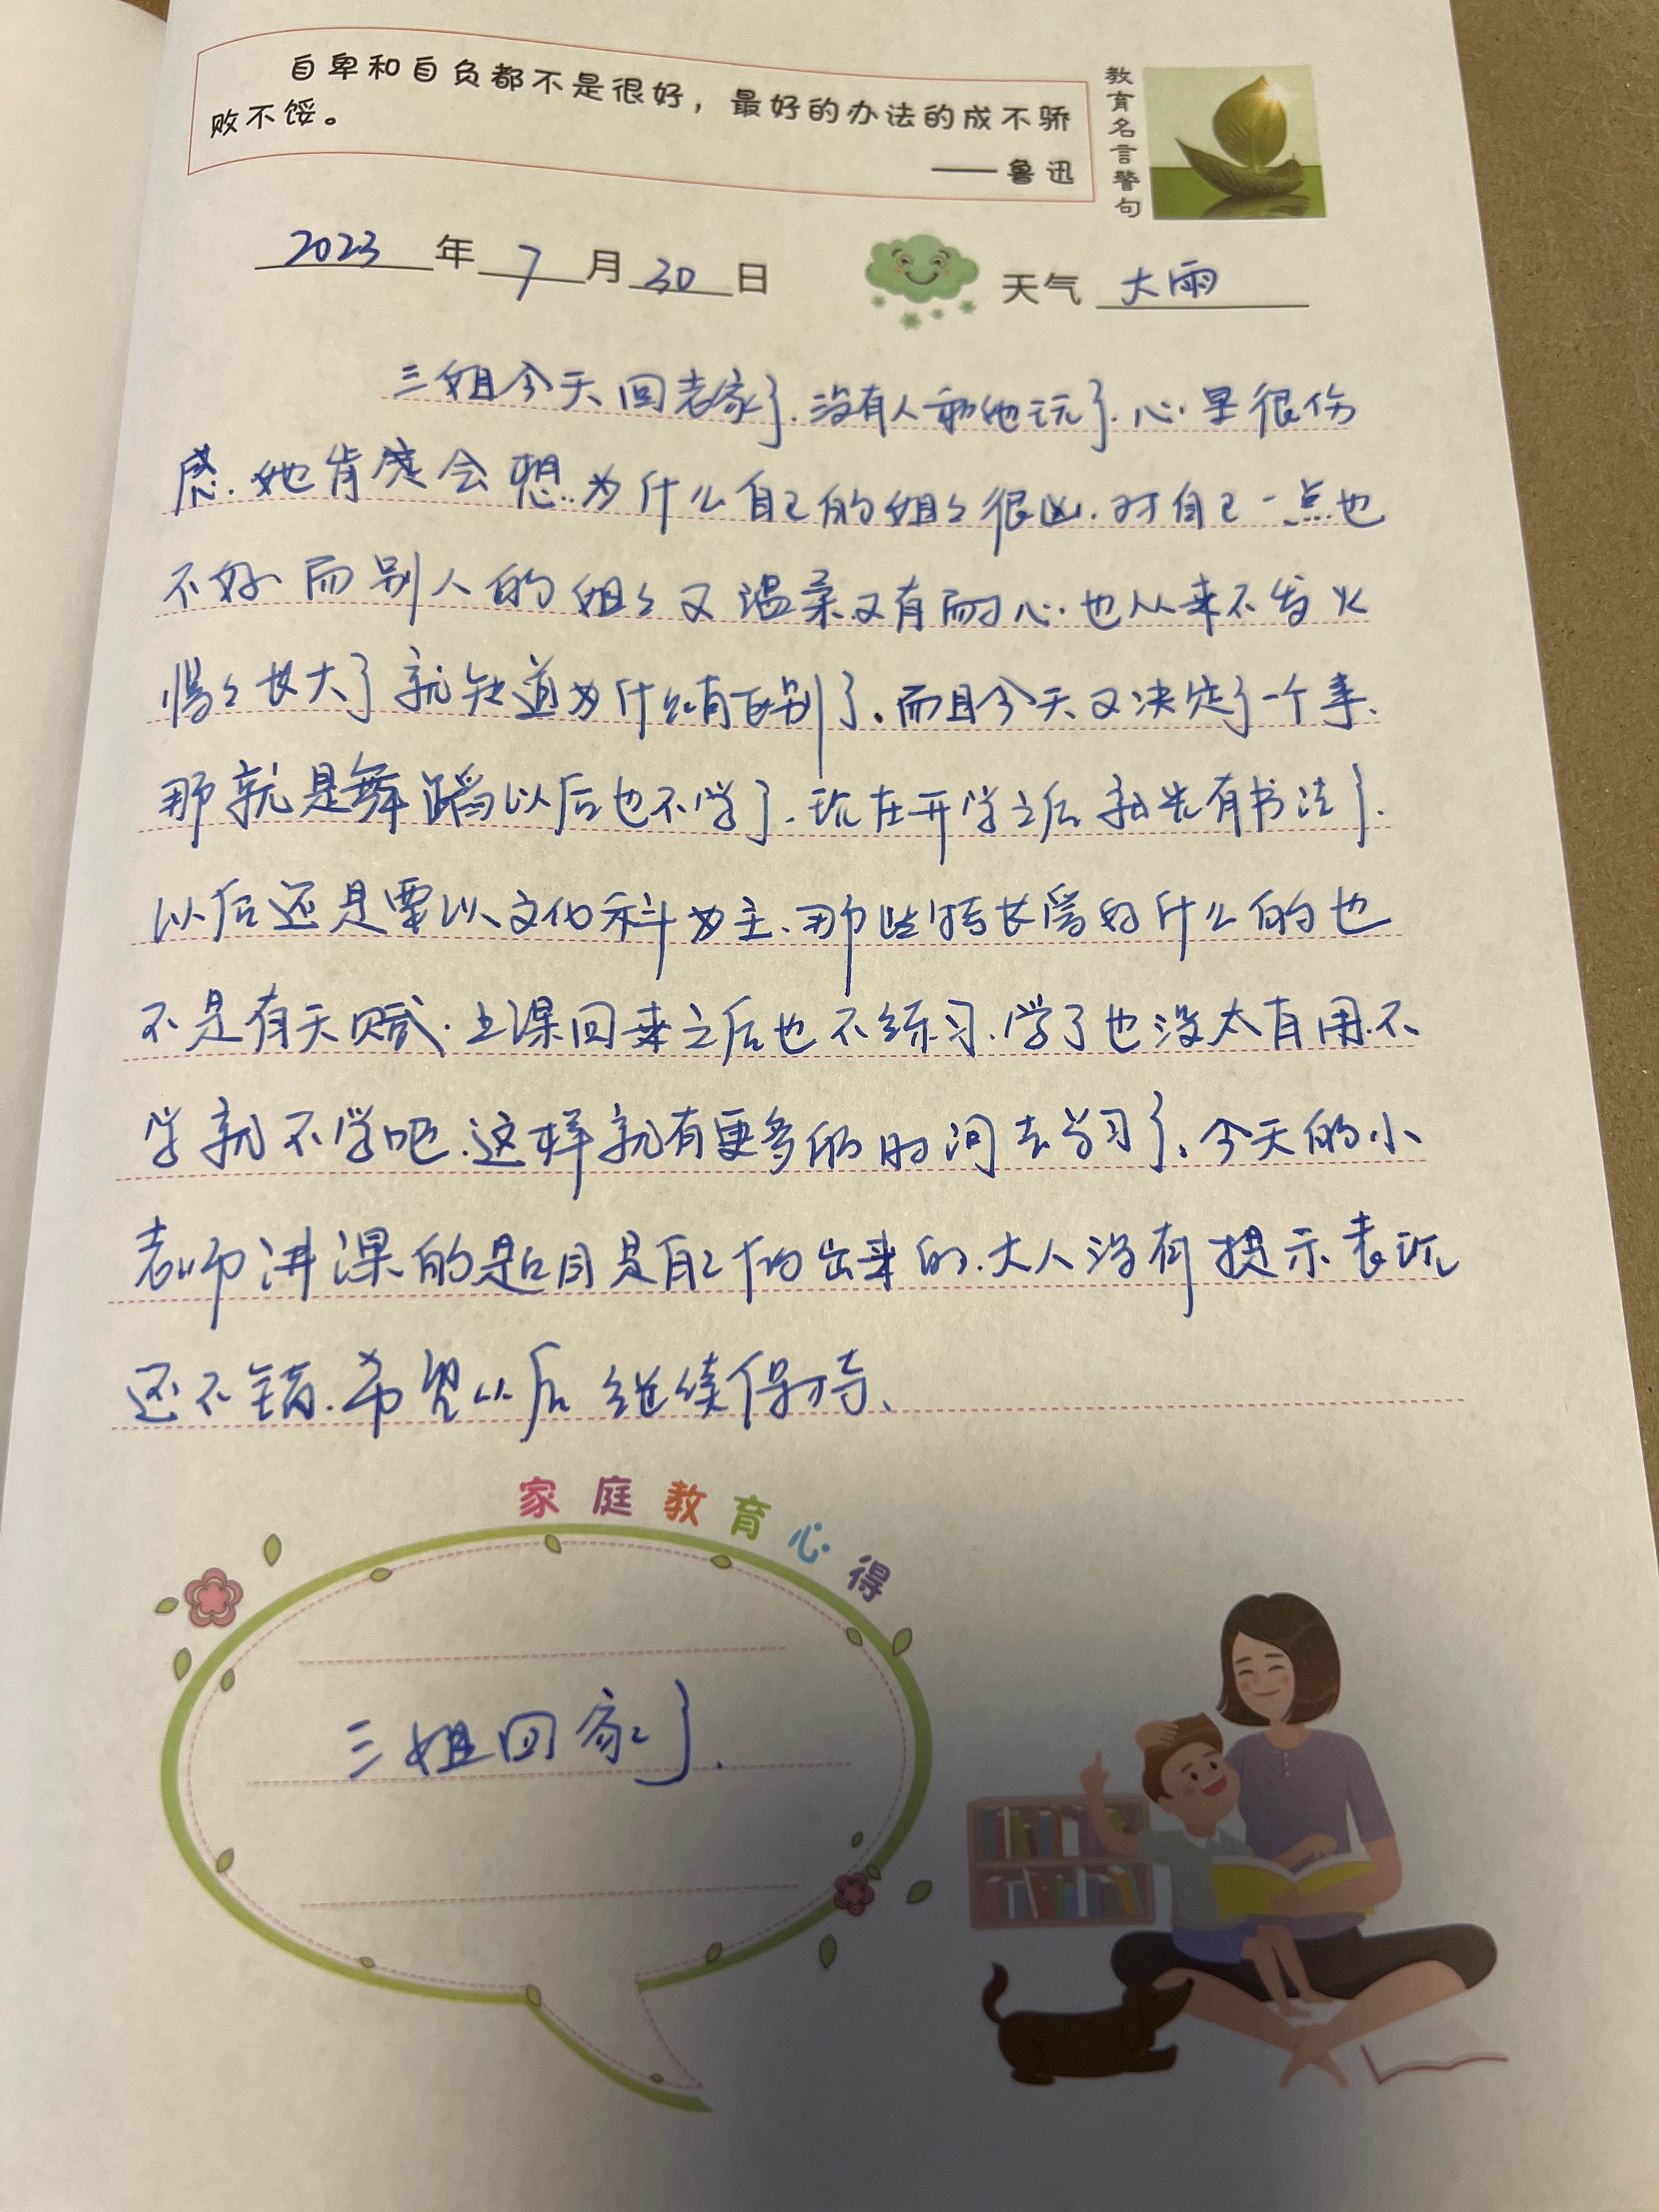 自卑和自负都不是很好，最好的办法的成不骄
败不馁。
——鲁迅
教育名言警句
2023年7月30日 天气 大雨
三姐今天回老家了.没有人和她玩了.心里很伤
感.她肯定会想.为什么自己的姐姐很凶.对自己一点也
不好.而别人的姐姐又温柔又有耐心.也从来不发火
慢慢长大了就知道为什么有区别了。而且今天又决定了一个事.
那就是舞蹈以后也不学了.现在开学之后就先有书法了.
以后还是要以文化科为主.那些特长因为什么的也
不是有天赋.上课回来之后也不练习.学了也没太有用.不
学就不学吧.这样就有更多的时间去学习了.今天的小
老师讲课的题目是自己做出来的.大人没有提示表现
还不错.希望以后继续保持.
家庭教育心得
三姐回家了.